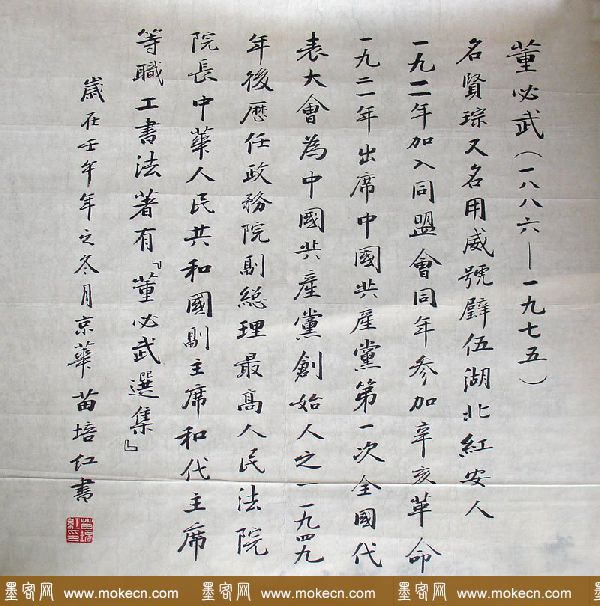 董必武（一八八六—一九七五）
名賢琮又名用威號璧伍湖北紅安人
一九一一年加入同盟會同年参加辛亥革命
一九二一年出席中國共産黨第一次全國代
表大會為中國共産黨創始人之一一九四九
年後歷任政務院副總理最高人民法院
院長中華人民共和國副主席和代主席
等職工書法著有『董必武選集』
歲在壬午年之冬月京華苗培红書
墨客网 www.mokecn.com 墨客网 www.mokecn.com 墨客网 www.mokecn.com